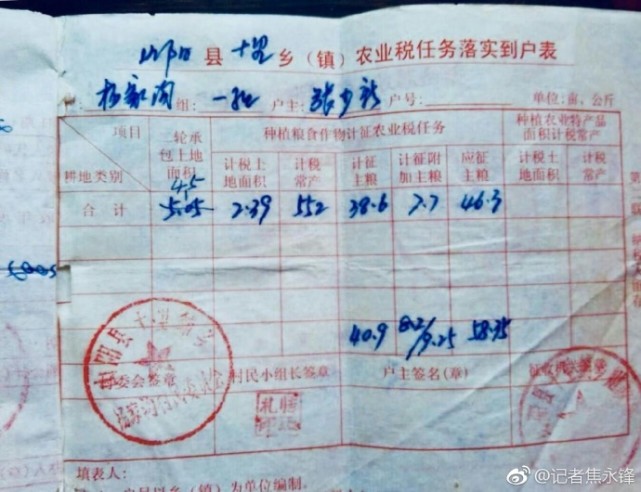 山阳县十里乡（镇）农业税任务落实到户表
村：杨家沟 组：一组 户主： 户号： 单位：亩、公斤
项目 二轮承包土地面积 种植粮食作物计征农业税任务 种植农业特产品面积计税常产
耕地类别 计税土地面积 计税常产 计征主粮 计征附加主粮 应征主粮 计税土地面积 计税常产
4.5
合计 5.05 2.39 552 38.6 7.7 46.3
40.9 8.2/9.25 58.35
村委会签章 村民小组长签章 户主签名（章） 征收机关签章
填表人：
为单位编制。
@记者焦永锋